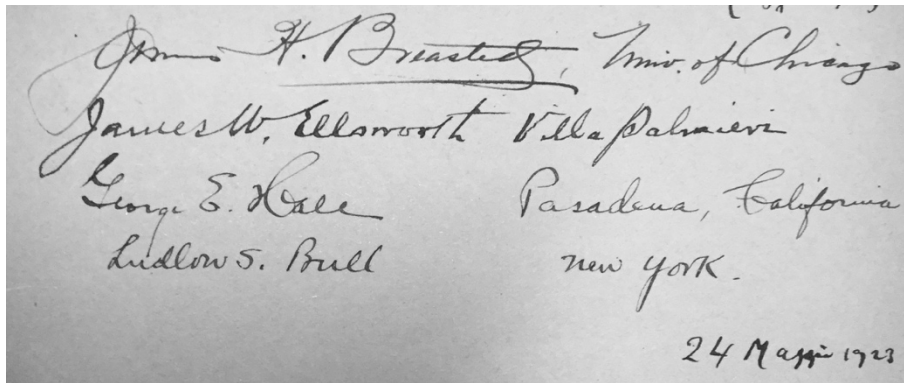 James H. Breasted, Univ. of Chicago
James W. Ellsworth Villa Palmieri
George E. Hale Pasadena, California
Ludlow S. Bull New York.
24 Maggio 1923